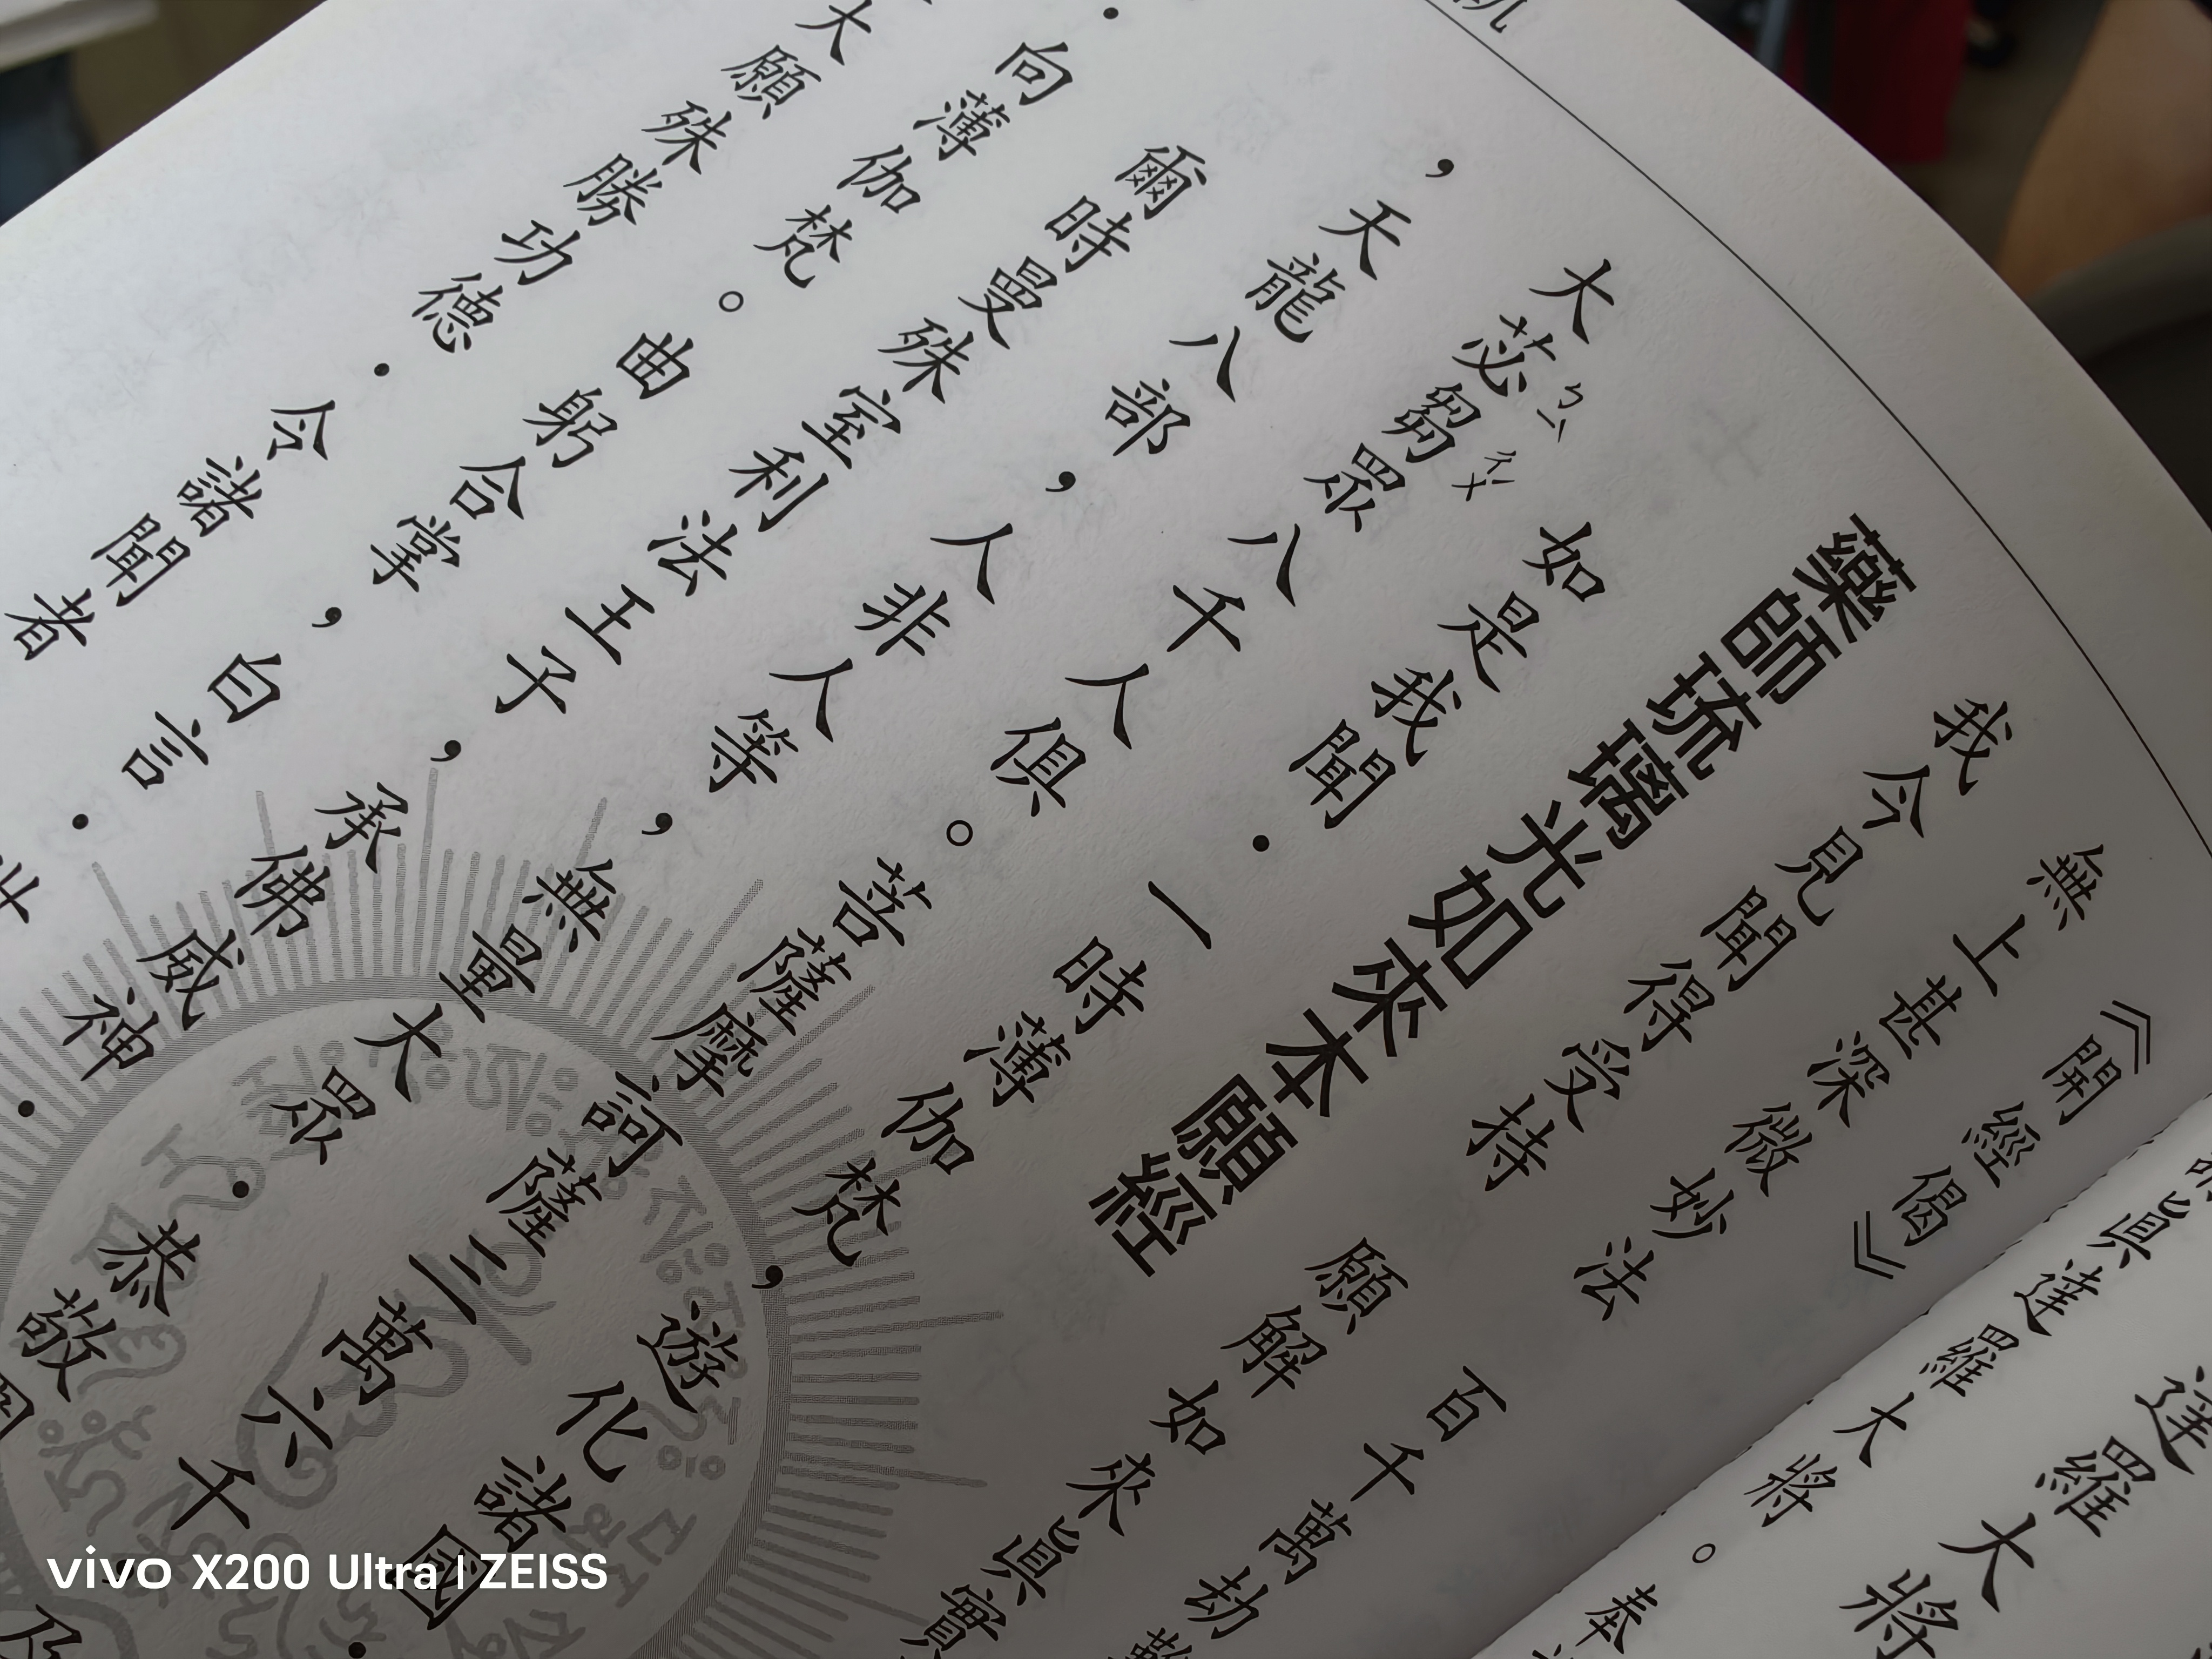 達羅大將
眞達羅大將。奉
《開經偈》
無上甚深微妙法 百千萬劫難
我今見聞得受持 願解如來眞實
藥師琉璃光如來本願經
如是我聞．一時薄伽梵，遊化諸國．
大苾ㄅㄧˋ芻ㄔㄨˊ眾八千人俱。菩薩摩訶薩三萬六千．及
，天龍八部，人非人等，無量大眾．恭敬圍
爾時曼殊室利法王子，承佛威神．
．向薄伽梵。曲躬合掌，白言．世
大願殊勝功德．令諸聞者
vivo X200 Ultra | ZEISS